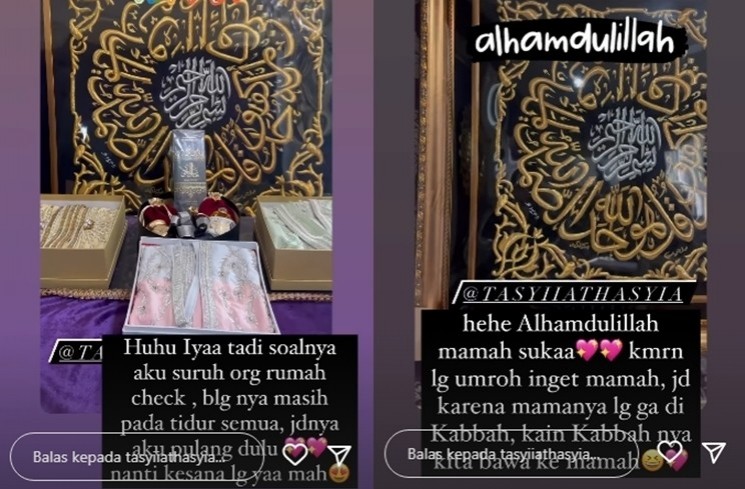 @TA
Huhu Iyaa tadi soalnya
aku suruh org rumah
check , blg nya masih
pada tidur semua, jdnya
aku pulang dulu 💖💖
nanti kesana lg yaa mah😍
Balas kepada tasyiiathasyia...
alhamdulillah
@TASYIIATHASYIA
hehe Alhamdulillah
mamah sukaa💖💖 kmrn
lg umroh inget mamah, jd
karena mamanya lg ga di
Kabbah, kain Kabbah nya
kita bawa ke mamah😆💖
Balas kepada tasyiiathasyia...